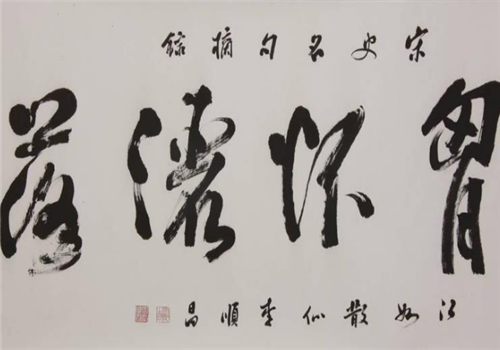 宋史名句摘錄
胷怀灑落
江散仙李順昌